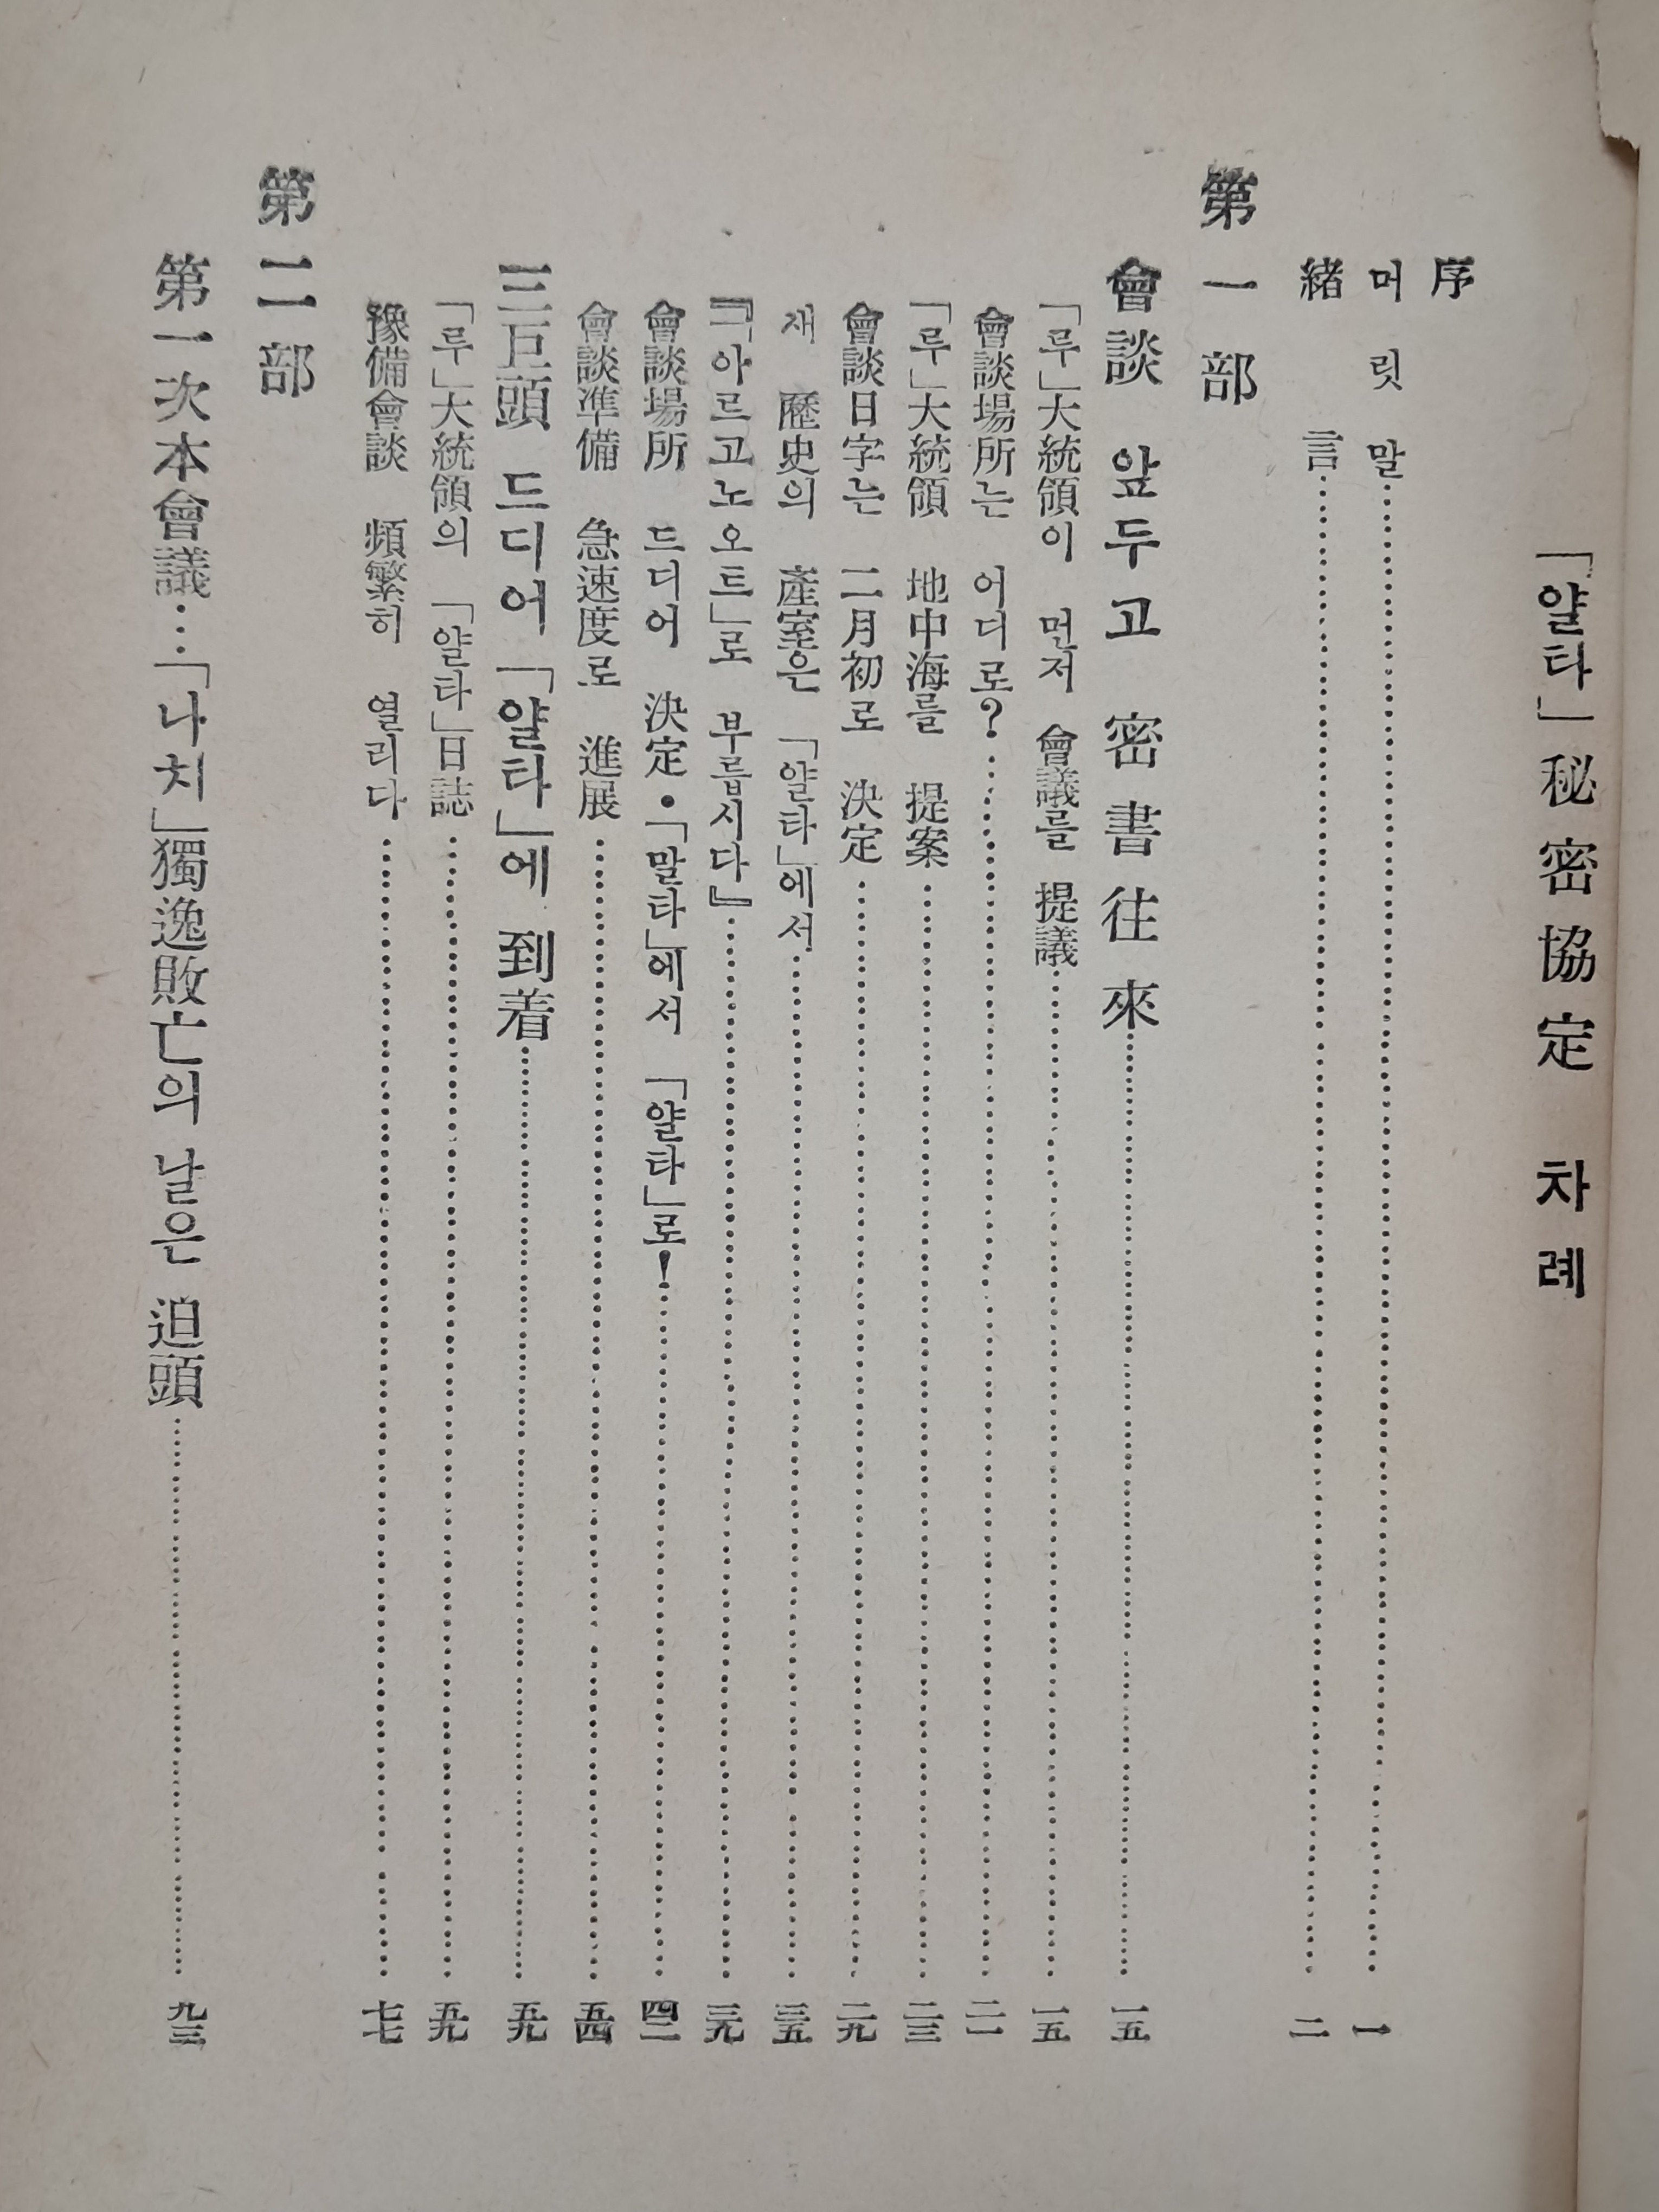 「얄타」秘密協定 차례
序
머릿말 一
緖言 二
第一部
會談 앞두고 密書往來 一五
「루」大統領이 먼저 會議를 提議 一五
會談場所는 어디로? 二一
「루」大統領 地中海를 提案 二三
會談日字는 二月初로 決定 二九
새 歷史의 產室은 「얄타」에서 三五
『「아르고노오트」로 부릅시다』 三九
會談場所 드디어 決定·「말타」에서 「얄타」로! 四二
會談準備 急速度로 進展 五四
三巨頭 드디어 「얄타」에 到着 五九
「루」大統領의 「얄타」日誌 五九
豫備會談 頻繁히 열리다 七七
第二部
第一次本會議…「나치」獨逸敗亡의 날은 迫頭 九三